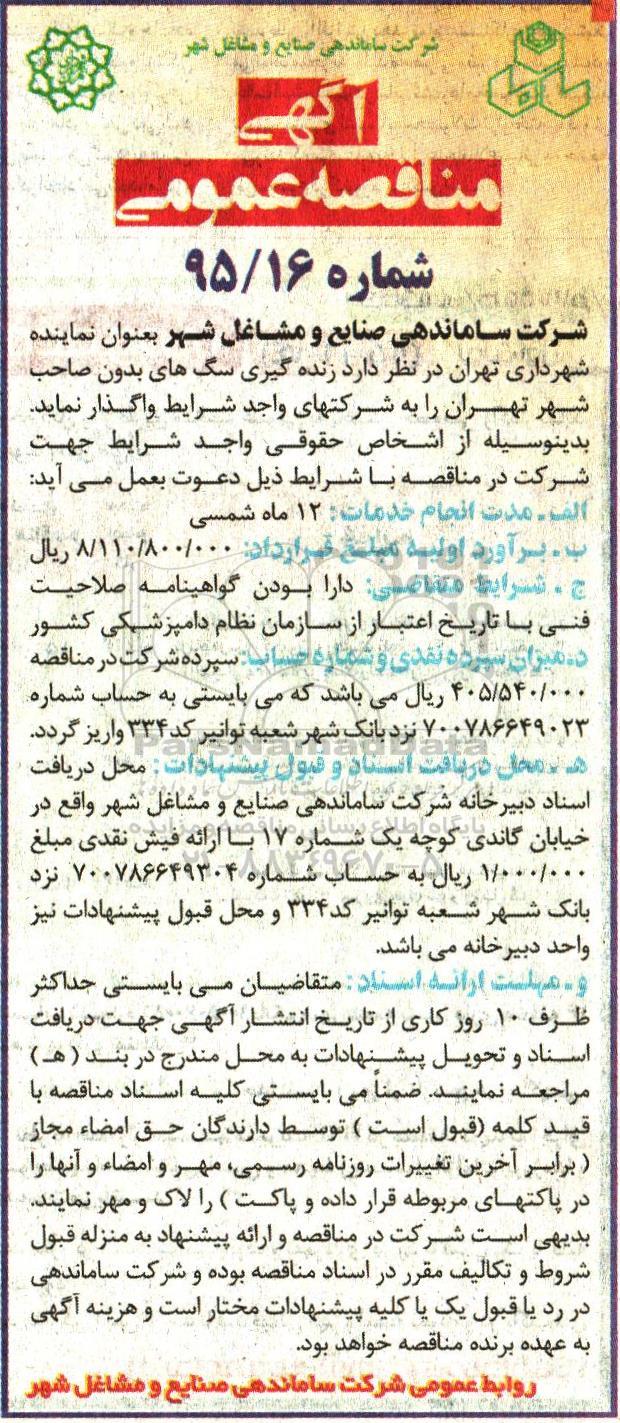 شرکت ساماندهی صنایع و مشاغل شهر
آگهی
مناقصه عمومی
شماره ۹۵/۱۶
شرکت ساماندهی صنایع و مشاغل شهر بعنوان نماینده
شهرداری تهران در نظر دارد زنده گیری سگ های بدون صاحب
شهر تهران را به شرکتهای واجد شرایط واگذار نماید.
بدینوسیله از اشخاص حقوقی واجد شرایط جهت
شرکت در مناقصه با شرایط ذیل دعوت بعمل می آید:
الف ـ مدت انجام خدمات: ۱۲ ماه شمسی
ب ـ برآورد اولیه مبلغ قرارداد: ۸/۱۱۰/۸۰۰/۰۰۰ ریال
ج ـ شرایط متقاضی: دارا بودن گواهینامه صلاحیت
فنی با تاریخ اعتبار از سازمان نظام دامپزشکی کشور
د ـ میزان سپرده نقدی و شماره حساب: سپرده شرکت در مناقصه
۴۰۵/۵۴۰/۰۰۰ ریال می باشد که می بایستی به حساب شماره
۷۰۰۷۸۶۶۴۹۰۲۳ نزد بانک شهر شعبه توانیر کد ۳۳۴ واریز گردد.
هـ ـ محل دریافت اسناد و قبول پیشنهادات: محل دریافت
اسناد دبیرخانه شرکت ساماندهی صنایع و مشاغل شهر واقع در
خیابان گاندی کوچه یک شماره ۱۷ با ارائه فیش نقدی مبلغ
۱/۰۰۰/۰۰۰ ریال به حساب شماره ۷۰۰۷۸۶۶۴۹۳۰۴ نزد
بانک شهر شعبه توانیر کد ۳۳۴ و محل قبول پیشنهادات نیز
واحد دبیرخانه می باشد.
و ـ مهلت ارائه اسناد: متقاضیان می بایستی حداکثر
ظرف ۱۰ روز کاری از تاریخ انتشار آگهی جهت دریافت
اسناد و تحویل پیشنهادات به محل مندرج در بند (هـ)
مراجعه نمایند. ضمناً می بایستی کلیه اسناد مناقصه با
قید کلمه (قبول است) توسط دارندگان حق امضاء مجاز
(برابر آخرین تغییرات روزنامه رسمی، مهر و امضاء و آنها را
در پاکتهای مربوطه قرار داده و پاکت) را لاک و مهر نمایند.
بدیهی است شرکت در مناقصه و ارائه پیشنهاد به منزله قبول
شروط و تکالیف مقرر در اسناد مناقصه بوده و شرکت ساماندهی
در رد یا قبول یک یا کلیه پیشنهادات مختار است و هزینه آگهی
به عهده برنده مناقصه خواهد بود.
روابط عمومی شرکت ساماندهی صنایع و مشاغل شهر
ParsNamadData
پایگاه اطلاع رسانی مناقصه و مزایده
۰۲۱-۸۸۳۴۹۶۷۰-۵